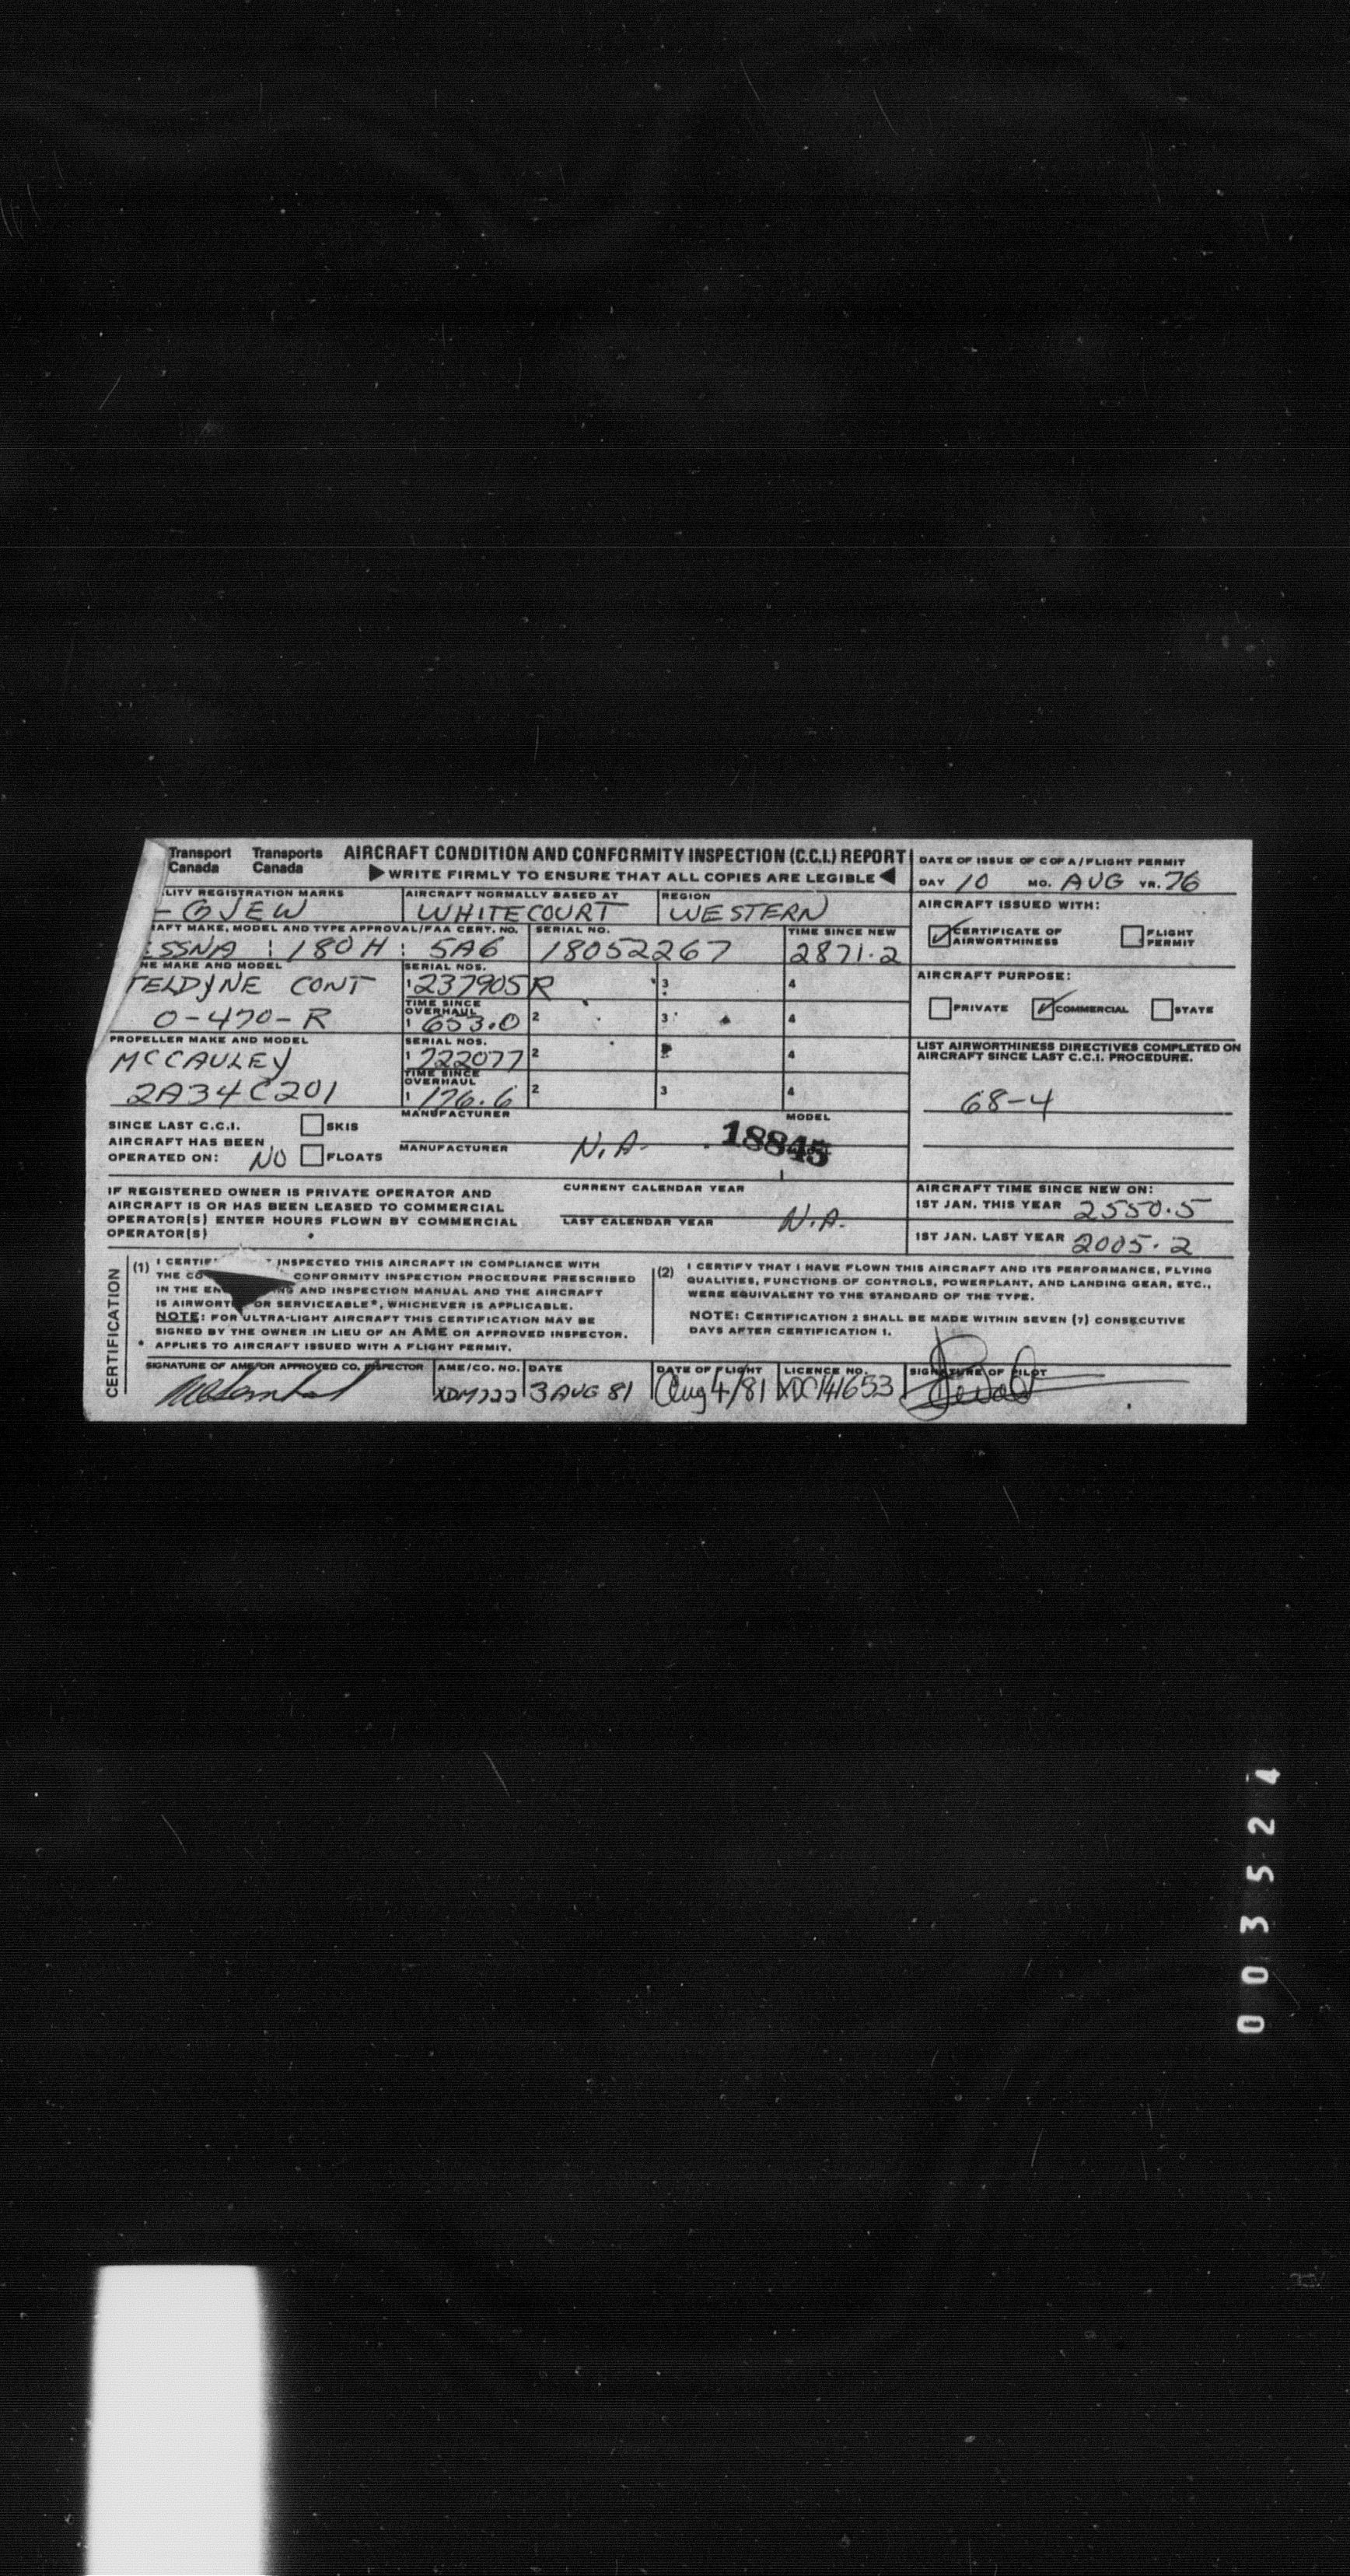 Transport Canada Transports Canada AIRCRAFT CONDITION AND CONFORMITY INSPECTION (C.C.I.) REPORT
▶ WRITE FIRMLY TO ENSURE THAT ALL COPIES ARE LEGIBLE ◀
DATE OF ISSUE OF C OF A/FLIGHT PERMIT
DAY 10 MO. AUG YR. 76
LITY REGISTRATION MARKS AIRCRAFT NORMALLY BASED AT REGION
- GJEW WHITECOURT WESTERN
AIRCRAFT ISSUED WITH:
CERTIFICATE OF AIRWORTHINESS FLIGHT PERMIT
AFT MAKE, MODEL AND TYPE APPROVAL/FAA CERT. NO. SERIAL NO. TIME SINCE NEW
ESSNA : 180H : 5A6 18052267 2871.2
NE MAKE AND MODEL SERIAL NOS.
TELDYNE CONT 1 237905R 3 4
AIRCRAFT PURPOSE:
PRIVATE COMMERCIAL STATE
TIME SINCE OVERHAUL
O-470-R 1 653.0 2 3 4
PROPELLER MAKE AND MODEL SERIAL NOS.
MCCAULEY 1 722077 2 4
TIME SINCE OVERHAUL
2A34C201 1 176.6 2 3 4
LIST AIRWORTHINESS DIRECTIVES COMPLETED ON
AIRCRAFT SINCE LAST C.C.I. PROCEDURE.
68-4
SINCE LAST C.C.I. SKIS MANUFACTURER MODEL
AIRCRAFT HAS BEEN
OPERATED ON: NO FLOATS MANUFACTURER N.A. 18845
IF REGISTERED OWNER IS PRIVATE OPERATOR AND
AIRCRAFT IS OR HAS BEEN LEASED TO COMMERCIAL
OPERATOR(S) ENTER HOURS FLOWN BY COMMERCIAL
OPERATOR(S)
CURRENT CALENDAR YEAR
LAST CALENDAR YEAR N.A.
AIRCRAFT TIME SINCE NEW ON:
1ST JAN. THIS YEAR 2550.5
1ST JAN. LAST YEAR 2005.2
CERTIFICATION
(1) I CERTIF INSPECTED THIS AIRCRAFT IN COMPLIANCE WITH
THE CO CONFORMITY INSPECTION PROCEDURE PRESCRIBED
IN THE EN NG AND INSPECTION MANUAL AND THE AIRCRAFT
IS AIRWORT OR SERVICEABLE*, WHICHEVER IS APPLICABLE.
NOTE: FOR ULTRA-LIGHT AIRCRAFT THIS CERTIFICATION MAY BE
SIGNED BY THE OWNER IN LIEU OF AN AME OR APPROVED INSPECTOR.
* APPLIES TO AIRCRAFT ISSUED WITH A FLIGHT PERMIT.
(2) I CERTIFY THAT I HAVE FLOWN THIS AIRCRAFT AND ITS PERFORMANCE, FLYING
QUALITIES, FUNCTIONS OF CONTROLS, POWERPLANT, AND LANDING GEAR, ETC.,
WERE EQUIVALENT TO THE STANDARD OF THE TYPE.
NOTE: CERTIFICATION 2 SHALL BE MADE WITHIN SEVEN (7) CONSECUTIVE
DAYS AFTER CERTIFICATION 1.
SIGNATURE OF AME/OR APPROVED CO. INSPECTOR AME/CO. NO. DATE DATE OF FLIGHT LICENCE NO. SIGNATURE OF PILOT
XDM722 3 AUG 81 Aug 4/81 XDC141653
003524